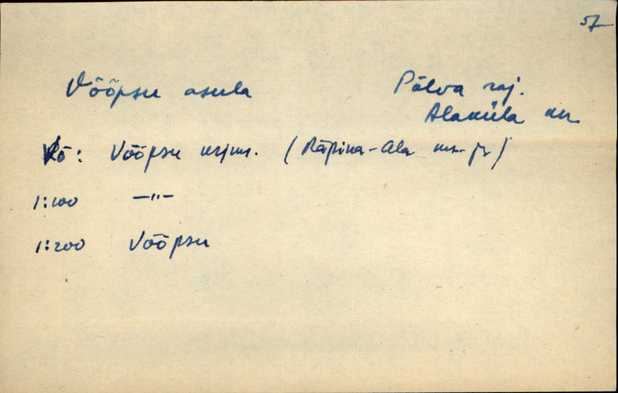 57
Võõpsu asula Põlva raj.
Alaküla kn.
Kõ: Võõpsu (Räpina-Ala
1:100 —"—
1:200 Võõpsu